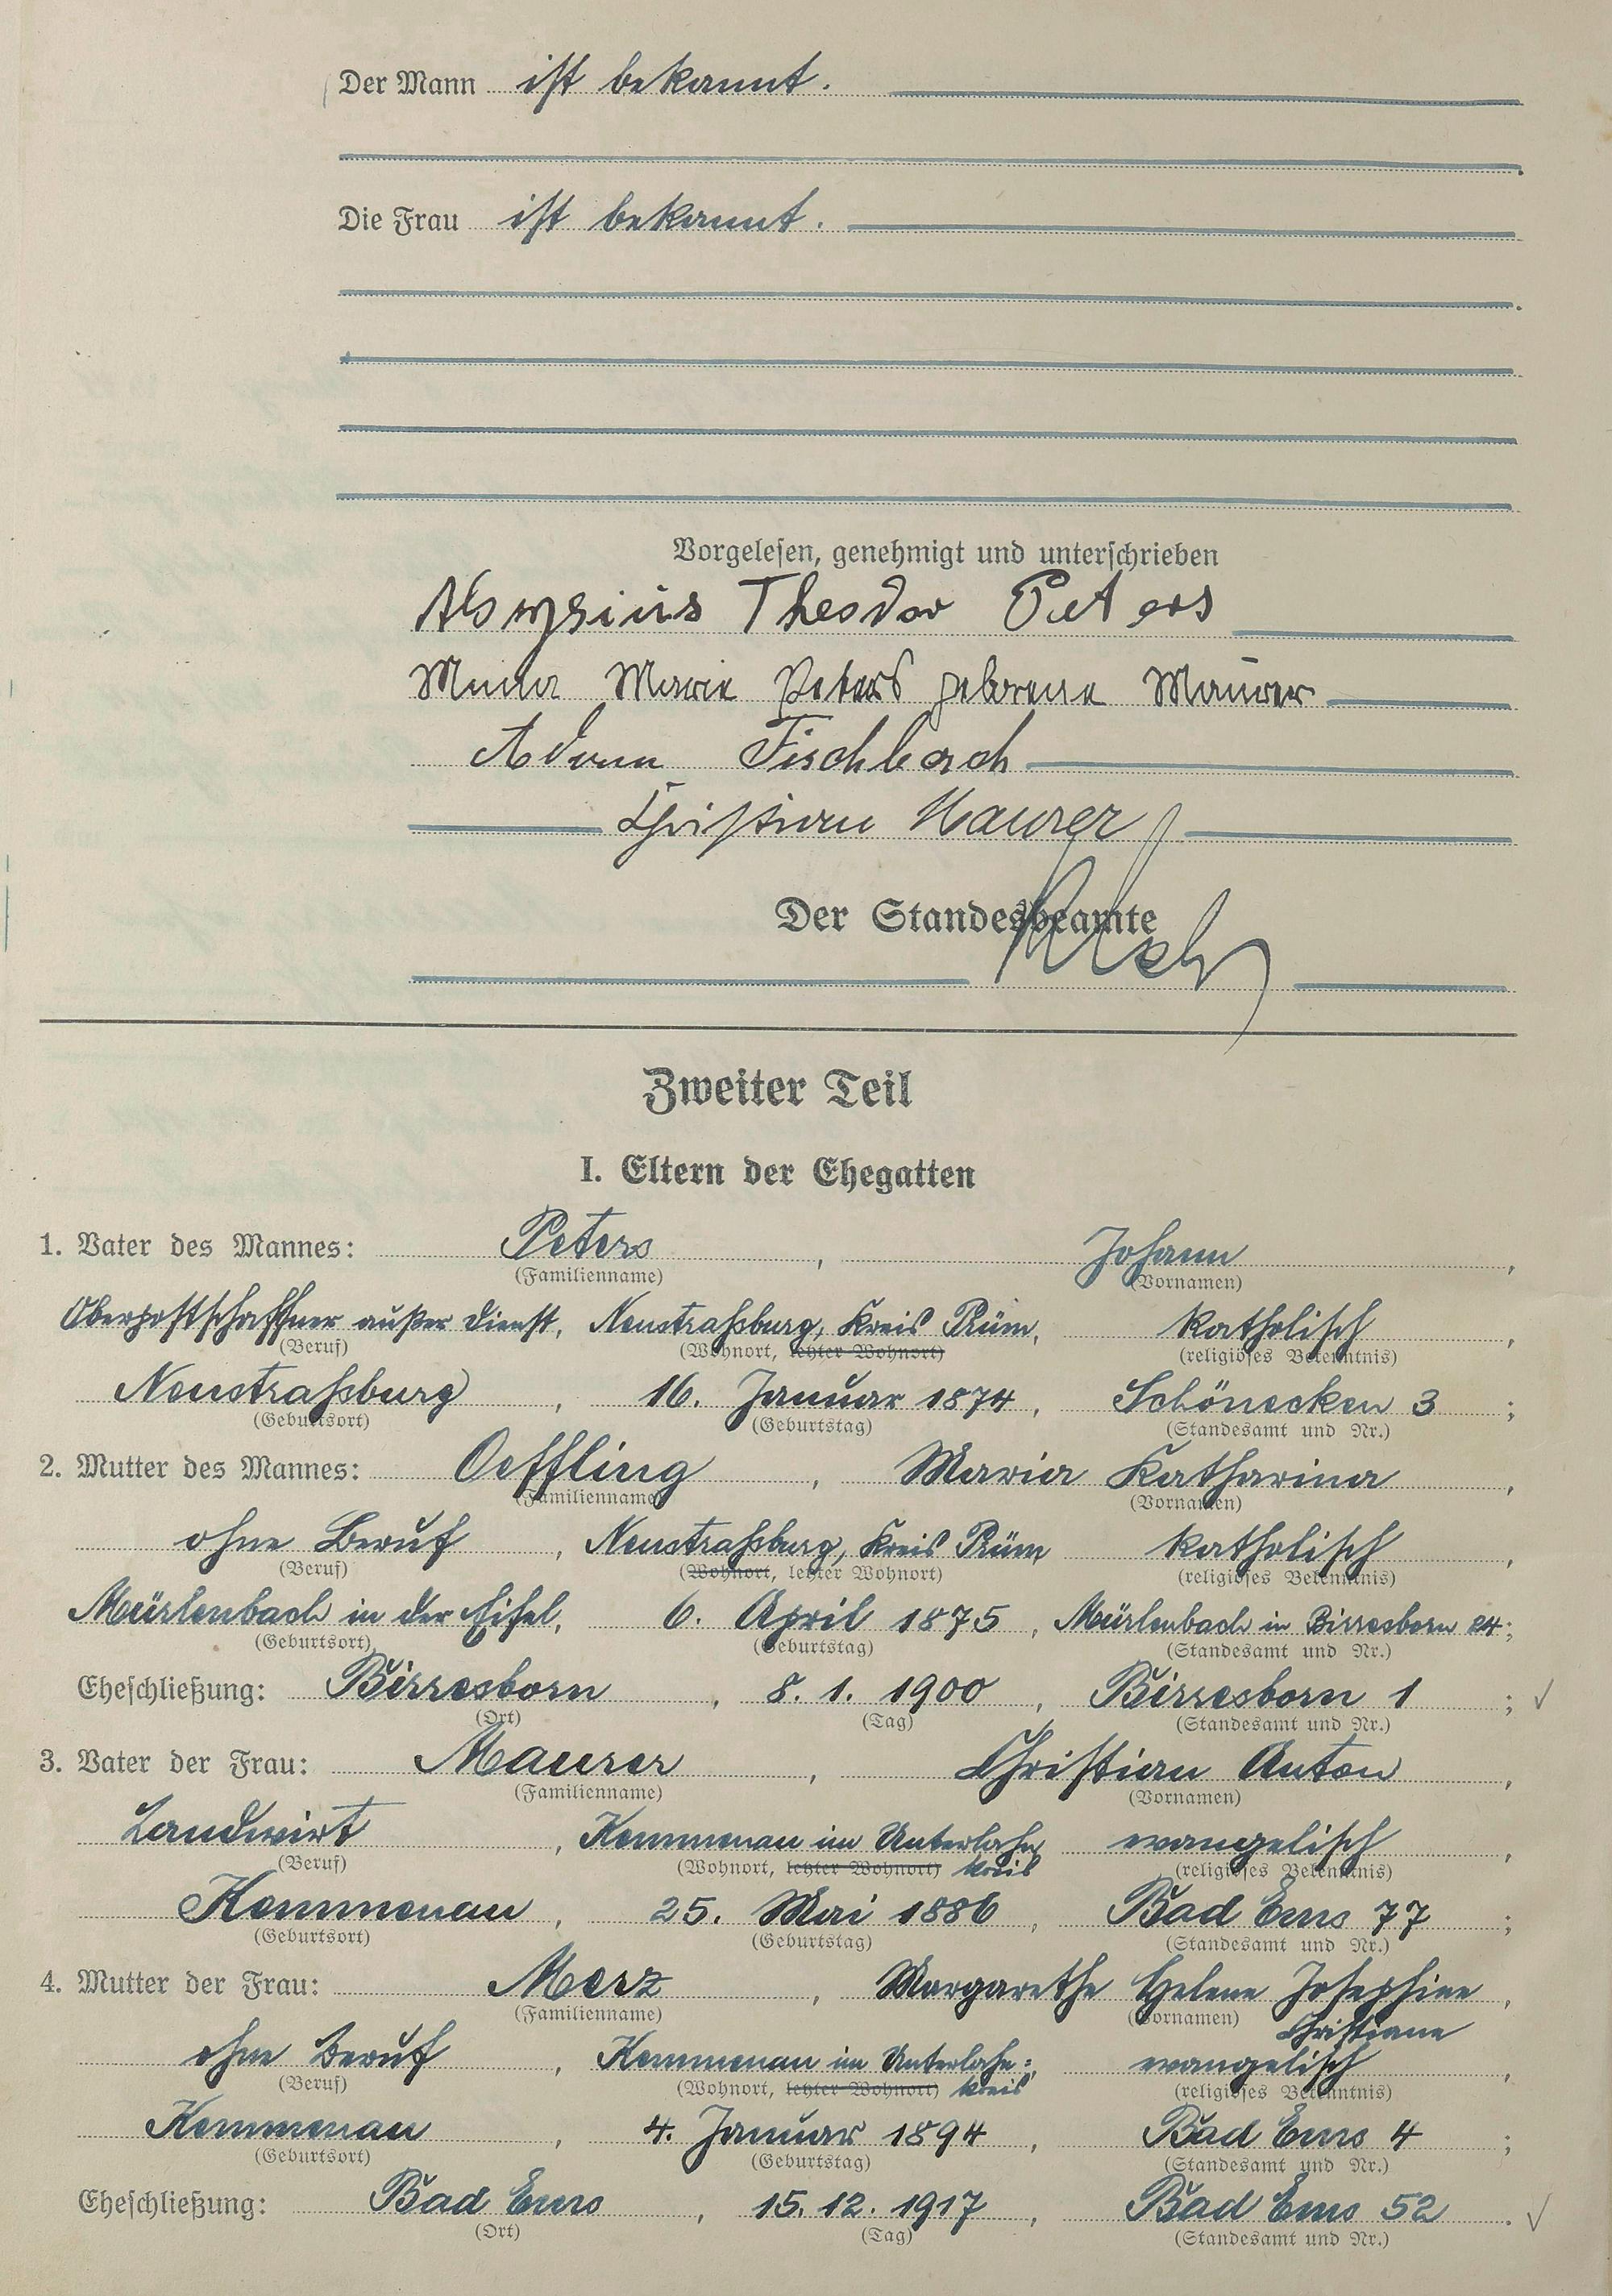 Der Mann ist bekannt.
Die Frau ist bekannt.
Vorgelesen, genehmigt und unterschrieben
Aloysius Theodor Peters
Minna Marie Peters geborene Maurer
Adam Fischbach
Christian Maurer
Der Standesbeamte
Zweiter Teil
I. Eltern der Ehegatten
1. Vater des Mannes: Peters, Johann,
(Familienname) (Vornamen)
Oberpostschaffner außer Dienst, Neustraßburg, Kreis Prüm, katholisch,
(Beruf) (Wohnort, letzter Wohnort) (religiöses Bekenntnis)
Neustraßburg, 16. Januar 1874, Schönecken 3;
(Geburtsort) (Geburtstag) (Standesamt und Nr.)
2. Mutter des Mannes: Oeffling, Maria Katharina,
(Familienname) (Vornamen)
ohne Beruf, Neustraßburg, Kreis Prüm katholisch,
(Beruf) (Wohnort, letzter Wohnort) (religiöses Bekenntnis)
Mürlenbach in der Eifel, 6. April 1875, Mürlenbach in Birresborn 24;
(Geburtsort) (Geburtstag) (Standesamt und Nr.)
Eheschließung: Birresborn, 8. 1. 1900, Birresborn 1;
(Ort) (Tag) (Standesamt und Nr.)
3. Vater der Frau: Maurer, Christian Anton,
(Familienname) (Vornamen)
Landwirt, Kemmenau im Unterlahn evangelisch,
(Beruf) (Wohnort, letzter Wohnort) kreis (religiöses Bekenntnis)
Kemmenau, 25. Mai 1886, Bad Ems 77;
(Geburtsort) (Geburtstag) (Standesamt und Nr.)
4. Mutter der Frau: Merz, Margarethe Helene Josephine,
(Familienname) (Vornamen) Christiane
ohne Beruf, Kemmenau im Unterlahn= evangelisch,
(Beruf) (Wohnort, letzter Wohnort) kreis (religiöses Bekenntnis)
Kemmenau, 4. Januar 1894, Bad Ems 4;
(Geburtsort) (Geburtstag) (Standesamt und Nr.)
Eheschließung: Bad Ems, 15. 12. 1917, Bad Ems 52.
(Ort) (Tag) (Standesamt und Nr.)